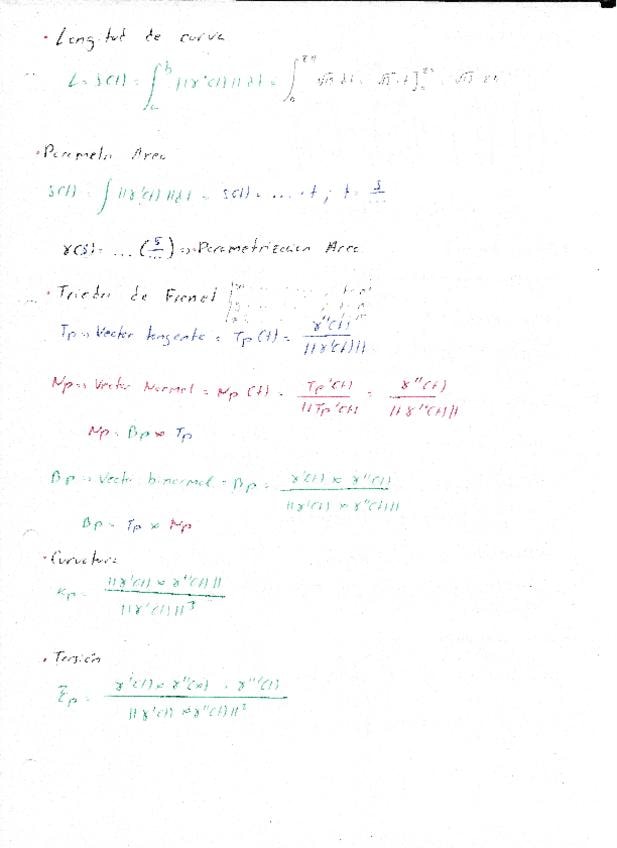 · Longitud de curva
L = S(t) = ∫_a^b ||γ'(t)|| dt =
· Parametro Arco
S(t) = ∫ ||γ'(t)|| dt = S(t) = ... · t ; t = s/...
γ(s) = ... (s/...) => Parametrización Arco
· Triedro de Frenet
Tp => Vector tangente = Tp(t) = γ'(t) / ||γ'(t)||
Np => Vector Normal = Np(t) = Tp'(t) / ||Tp'(t)|| = γ''(t) / ||γ''(t)||
Np = Bp × Tp
Bp => Vector binormal = Bp = γ'(t) × γ''(t) / ||γ'(t) × γ''(t)||
Bp = Tp × Np
· Curvatura
Kp = ||γ'(t) × γ''(t)|| / ||γ'(t)||³
· Torsión
γ'(t) × γ''(t) · γ'''(t) / ||γ'(t) × γ''(t)||²